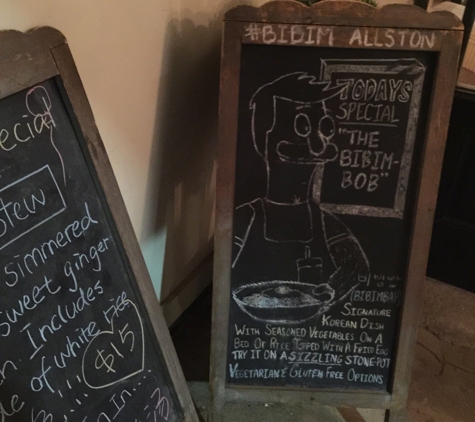 ecial
Stew
simmered
sweet ginger
Includes
of white rice
$15
#BIBIM ALLSTON
TODAYS
SPECIAL
"THE
BIBIM-
BOB"
(BIBIMBAP)
SIGNATURE
KOREAN DISH
WITH SEASONED VEGETABLES ON A
BED OF RICE TOPPED WITH A FRIED EGG
TRY IT ON A SIZZLING STONE-POT
VEGETARIAN & GLUTEN FREE OPTIONS